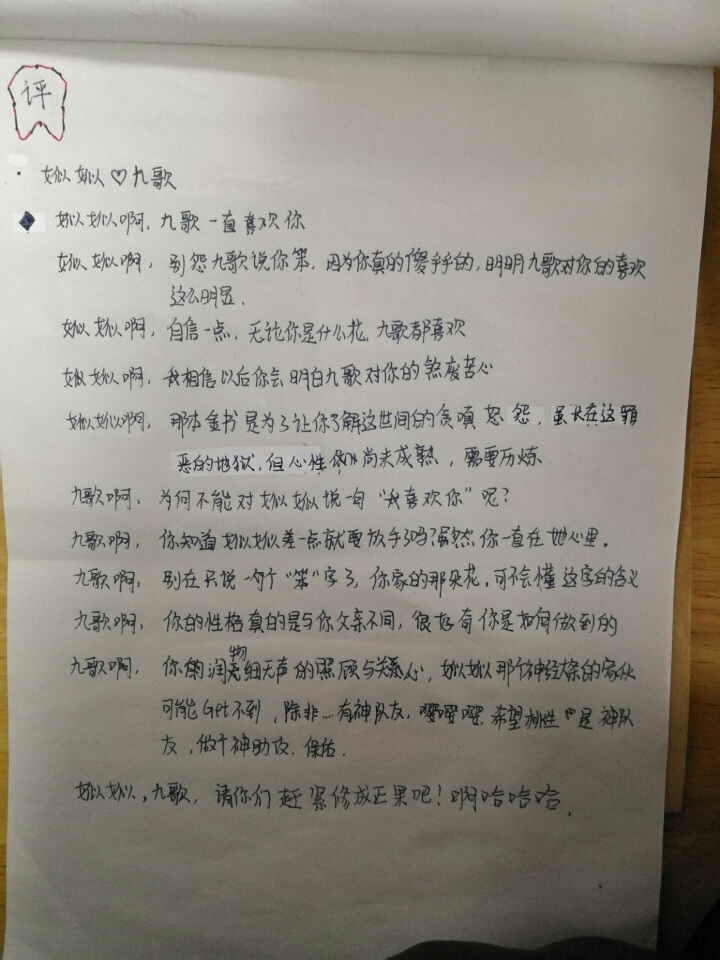 评
· 姒姒♡九歌
◆ 姒姒啊，九歌一直喜欢你
姒姒啊，别怨九歌说你笨，因为你真的傻乎乎的，明明九歌对你的喜欢
这么明显．
姒姒啊，自信一点，无论你是什么花，九歌都喜欢
姒姒啊，我相信以后你会明白九歌对你的煞废苦心
姒姒啊，那本金书是为了让你了解这世间的贪嗔怒怨，虽长在这罪
恶的地狱，但心性尚未成熟，需要历炼
九歌啊、为何不能对姒姒说一句“我喜欢你”呢？
九歌啊，你知道姒姒差一点就要放手了吗？虽然你一直在她心里。
九歌啊，别在只说一个“笨”字了，你家的那朵花，可不会懂这字的含义
九歌啊，你的性格真的是与你父亲不同，很好奇你是如何做到的
九歌啊，你的润物细无声的照顾与关心，姒姒那个神经大条的家伙
可能Get不到，除非…有神队友，嘤嘤嘤．希望是神队
友，做个神助攻．保佑．
姒姒，九歌，请你们赶紧修成正果吧！啊哈哈哈，